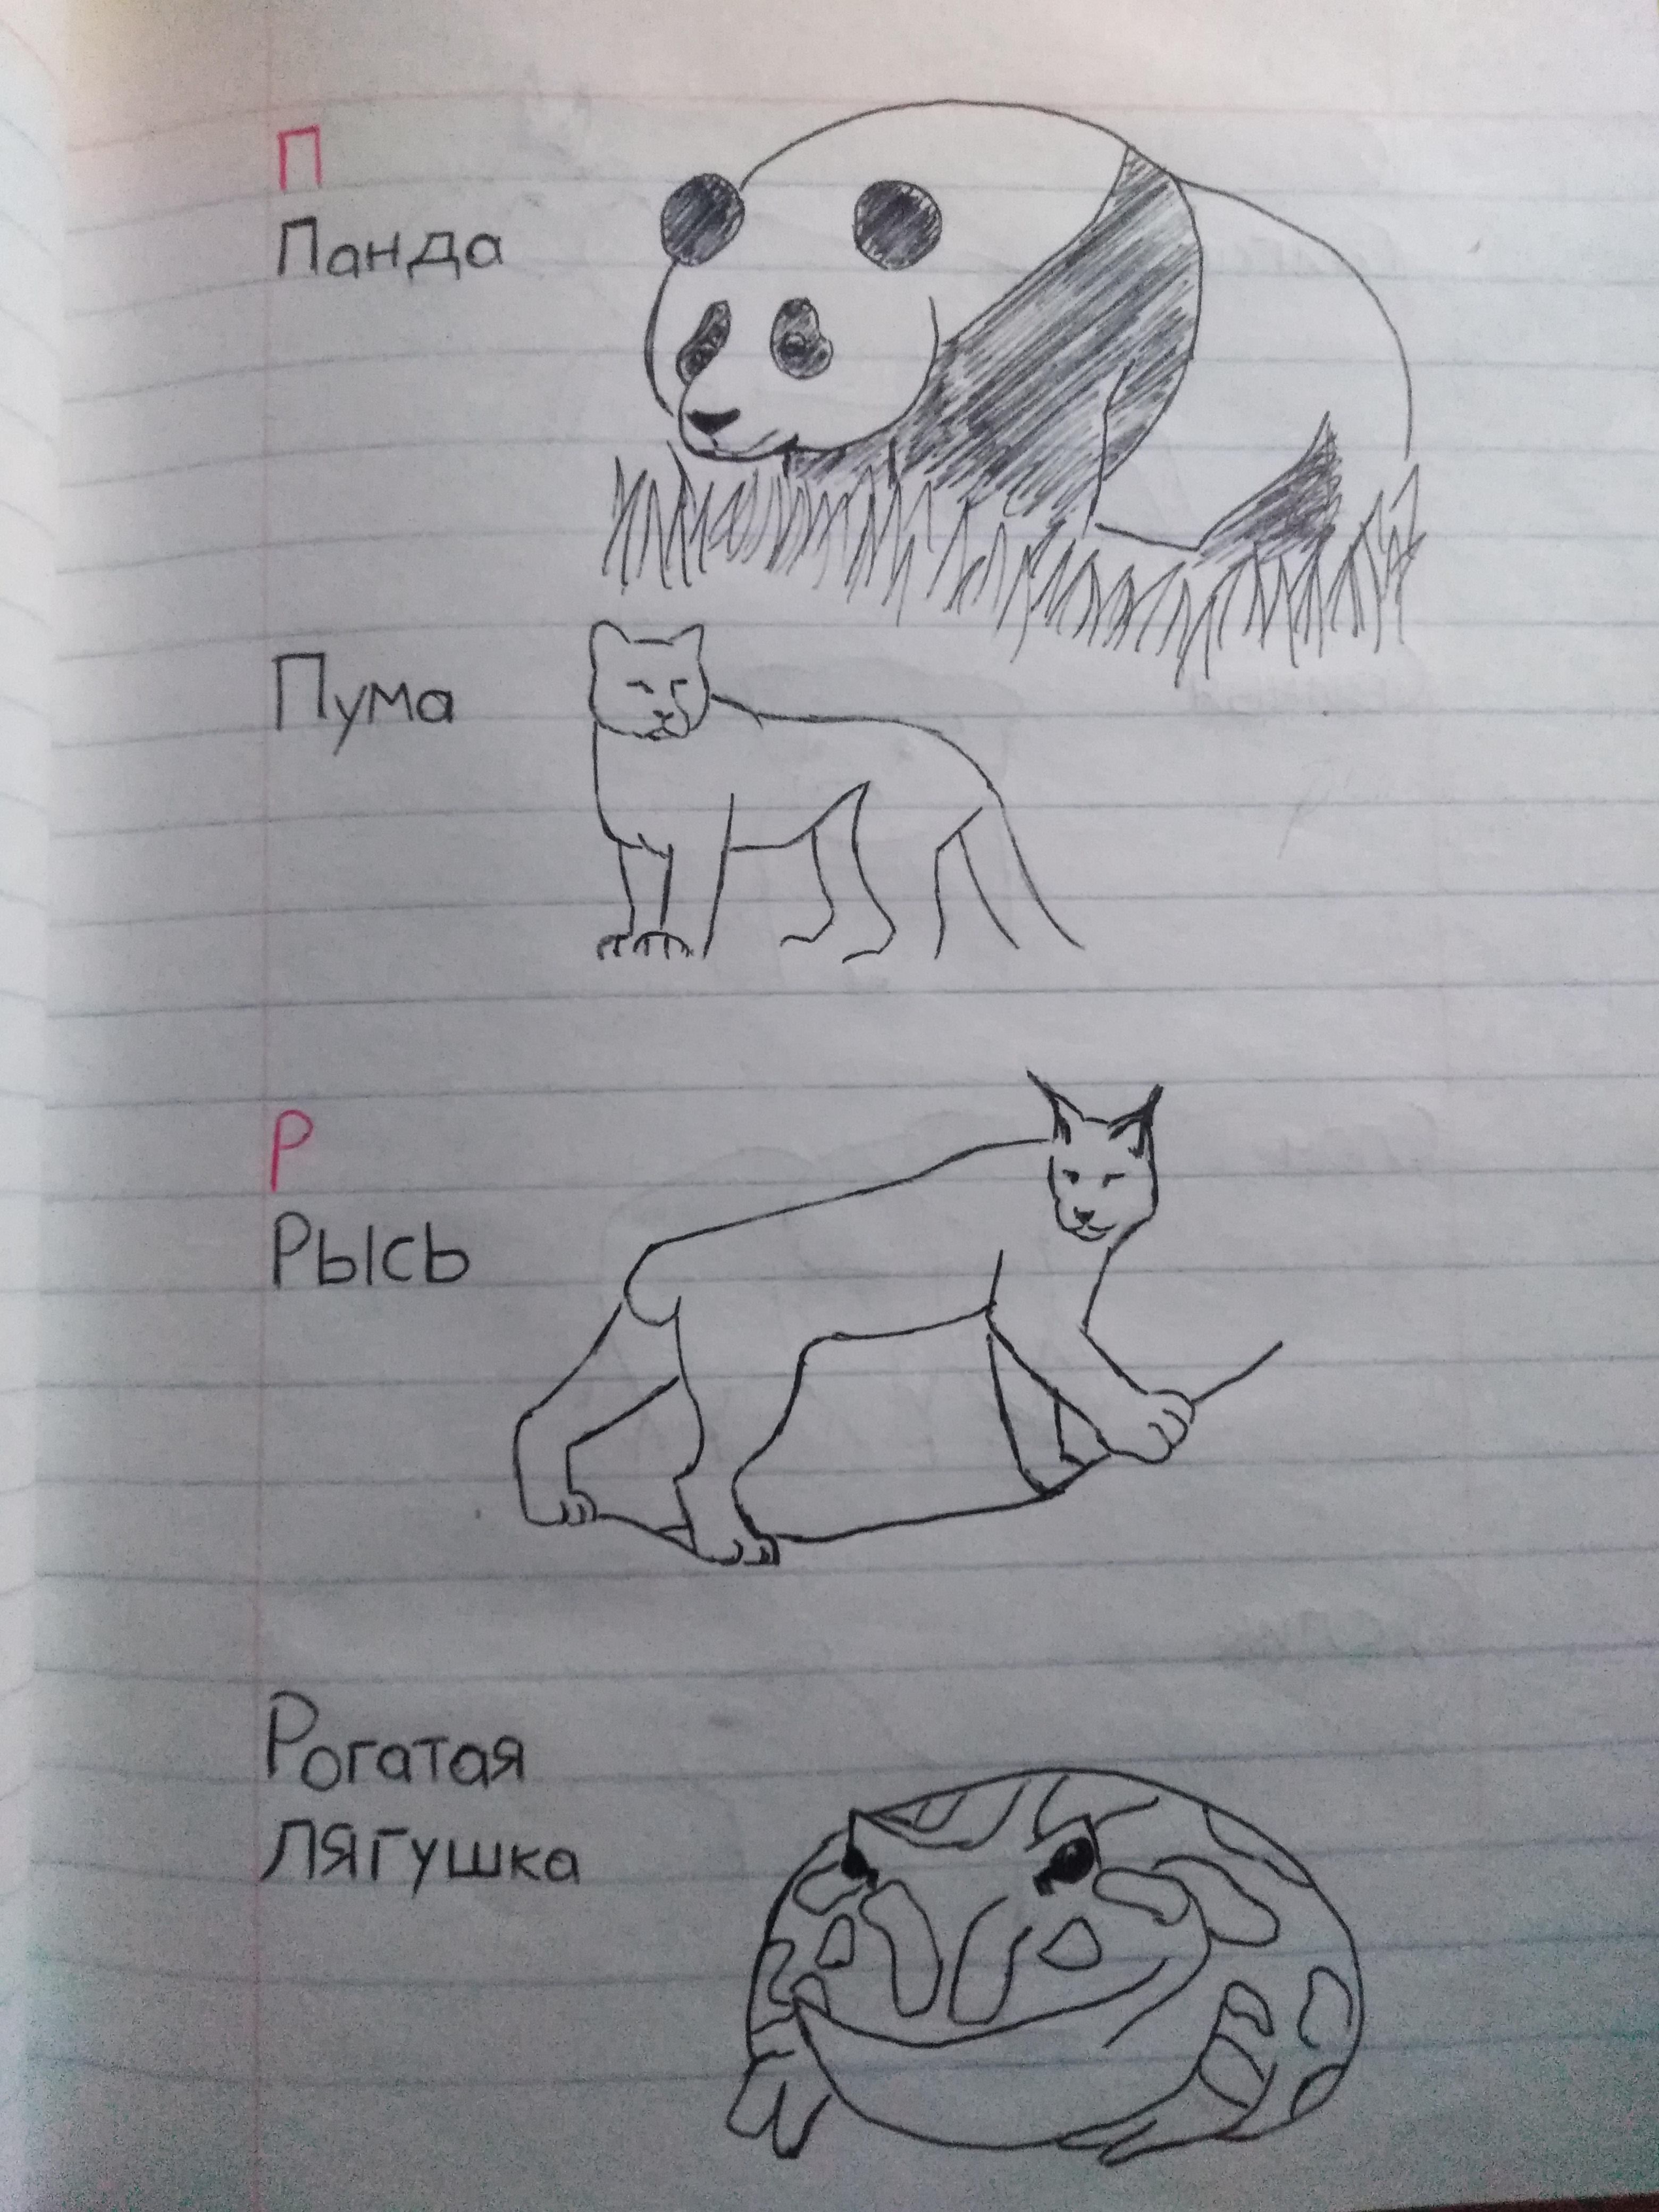 П
Панда
Пума
Р
Рысь
Рогатая
лягушка